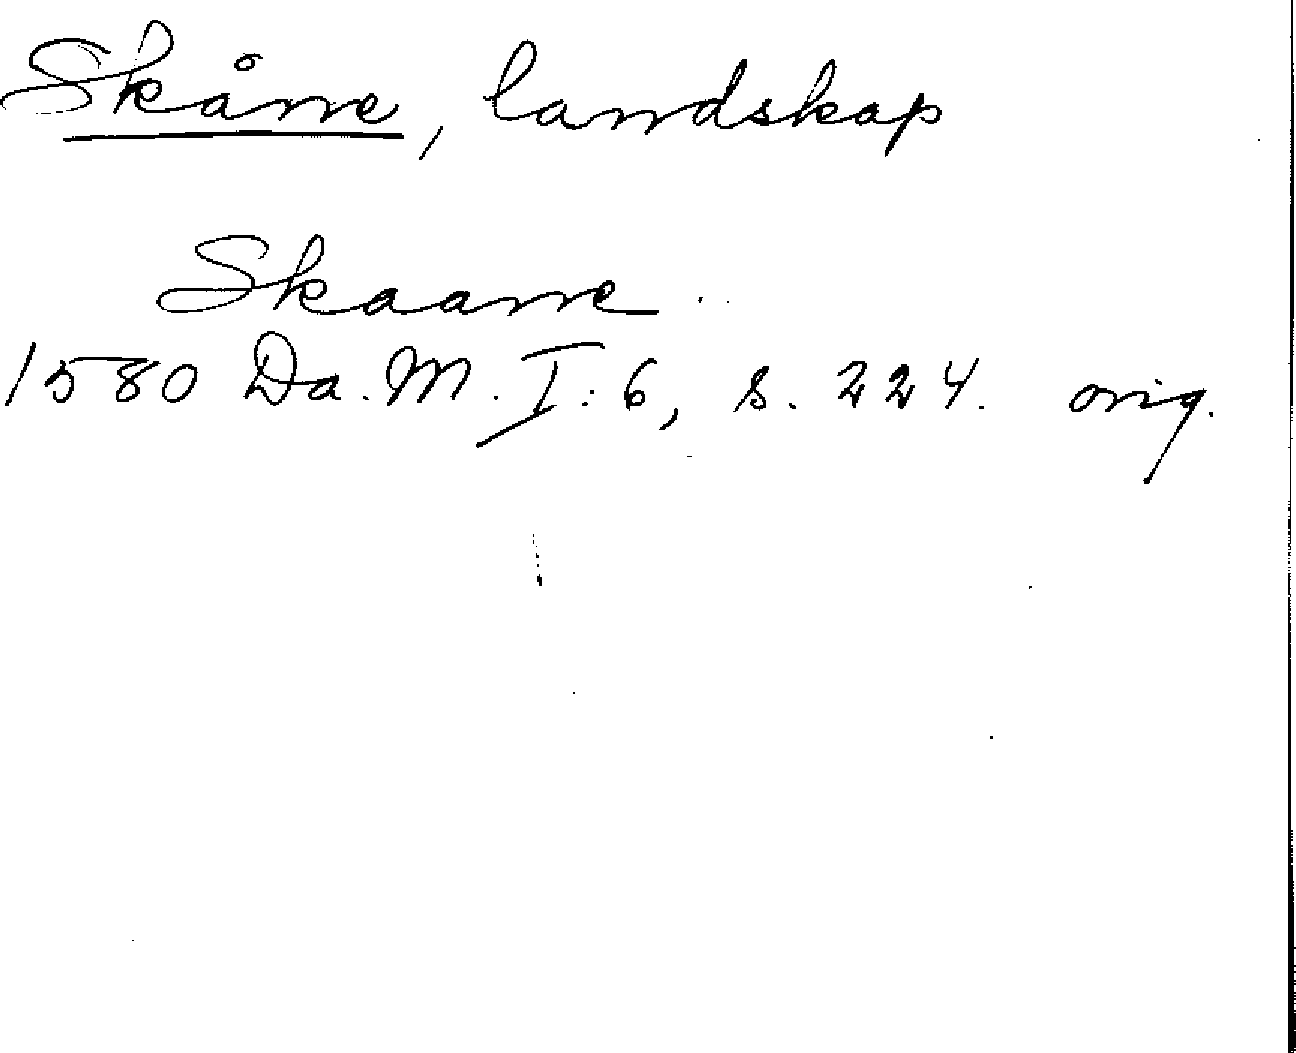 Skåne, landskap
Skaane
1580 Da. M. I: 6, s. 224. orig.